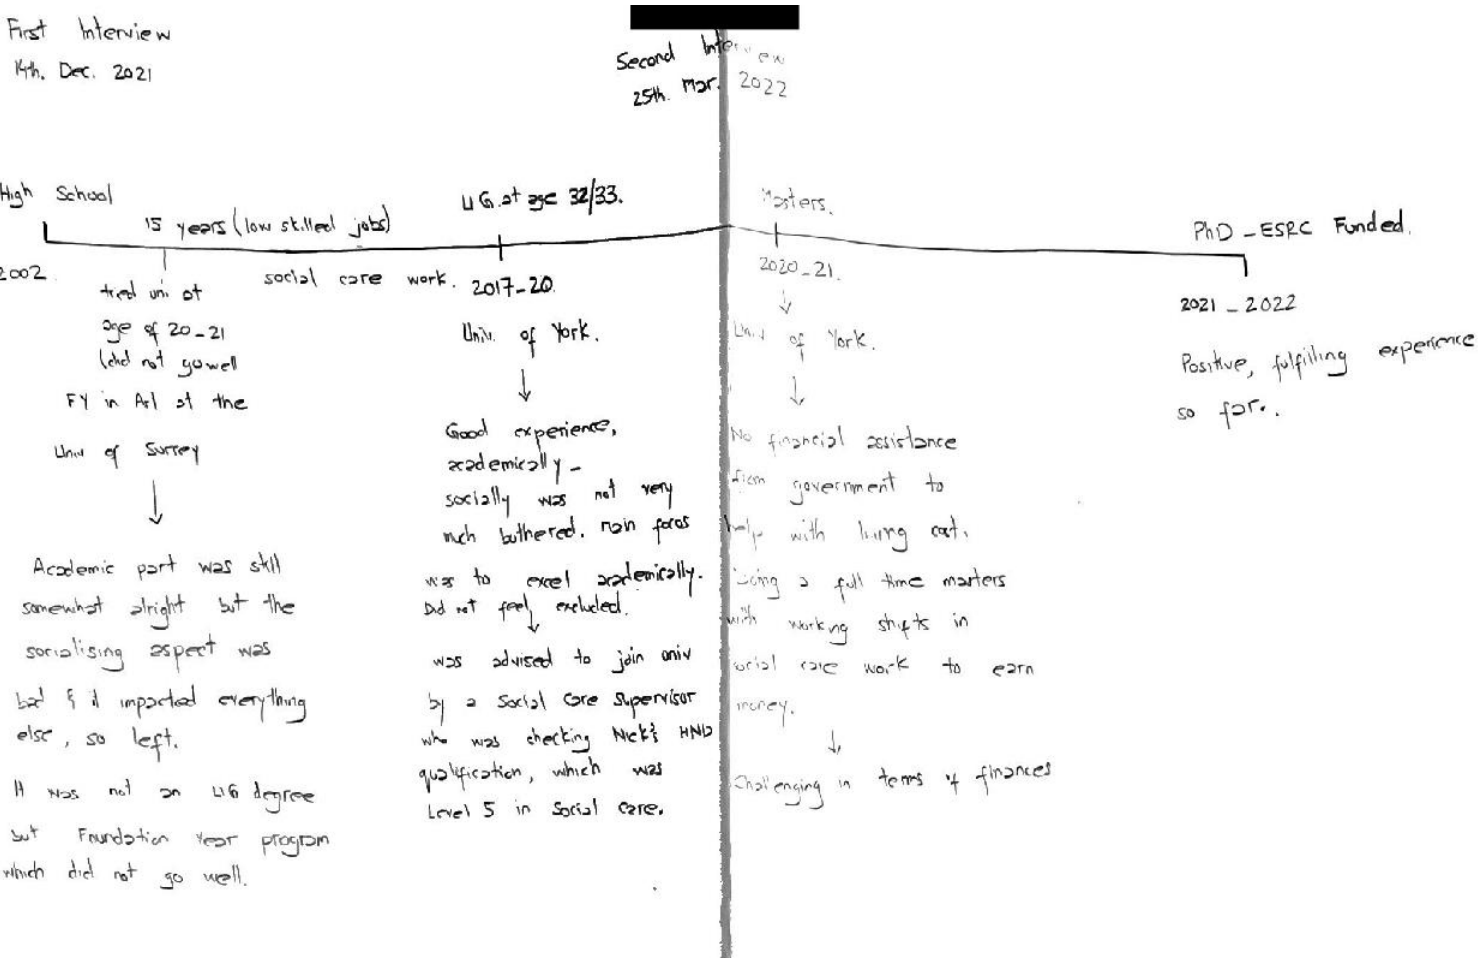 First Interview
14th. Dec. 2021
Second Interview
25th. Mar. 2022
High School
2002.
15 years (low skilled jobs)
social care work.
tried uni at
age of 20-21
(did not go well
FY in Art at the
Univ of Surrey
Academic part was still
somewhat alright but the
socialising aspect was
bad & it impacted everything
else, so left.
It was not an UG degree
but Foundation Year program
which did not go well.
UG. at age 32/33.
2017-20.
Univ. of York.
Good experience,
academically -
socially was not very
much bothered. main focus
was to excel academically.
Did not feel excluded.
was advised to join univ
by a Social Care Supervisor
who was checking Nick's HND
qualification, which was
Level 5 in Social care.
Masters.
2020-21.
Univ of York.
No financial assistance
from government to
help with living cost.
Doing a full time masters
with working shifts in
social care work to earn
money.
Challenging in terms of finances
PhD - ESRC Funded.
2021 - 2022
Positive, fulfilling experience
so far.